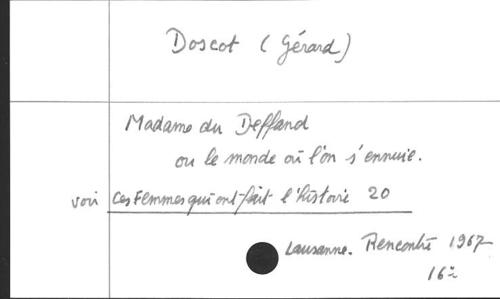 Doscot (Gérard)
Madame du Deffand
ou le monde où l'on s'ennuie.
voir Ces Femmes qui ont fait l'histoire 20
Lausanne. Rencontre 1967
16°